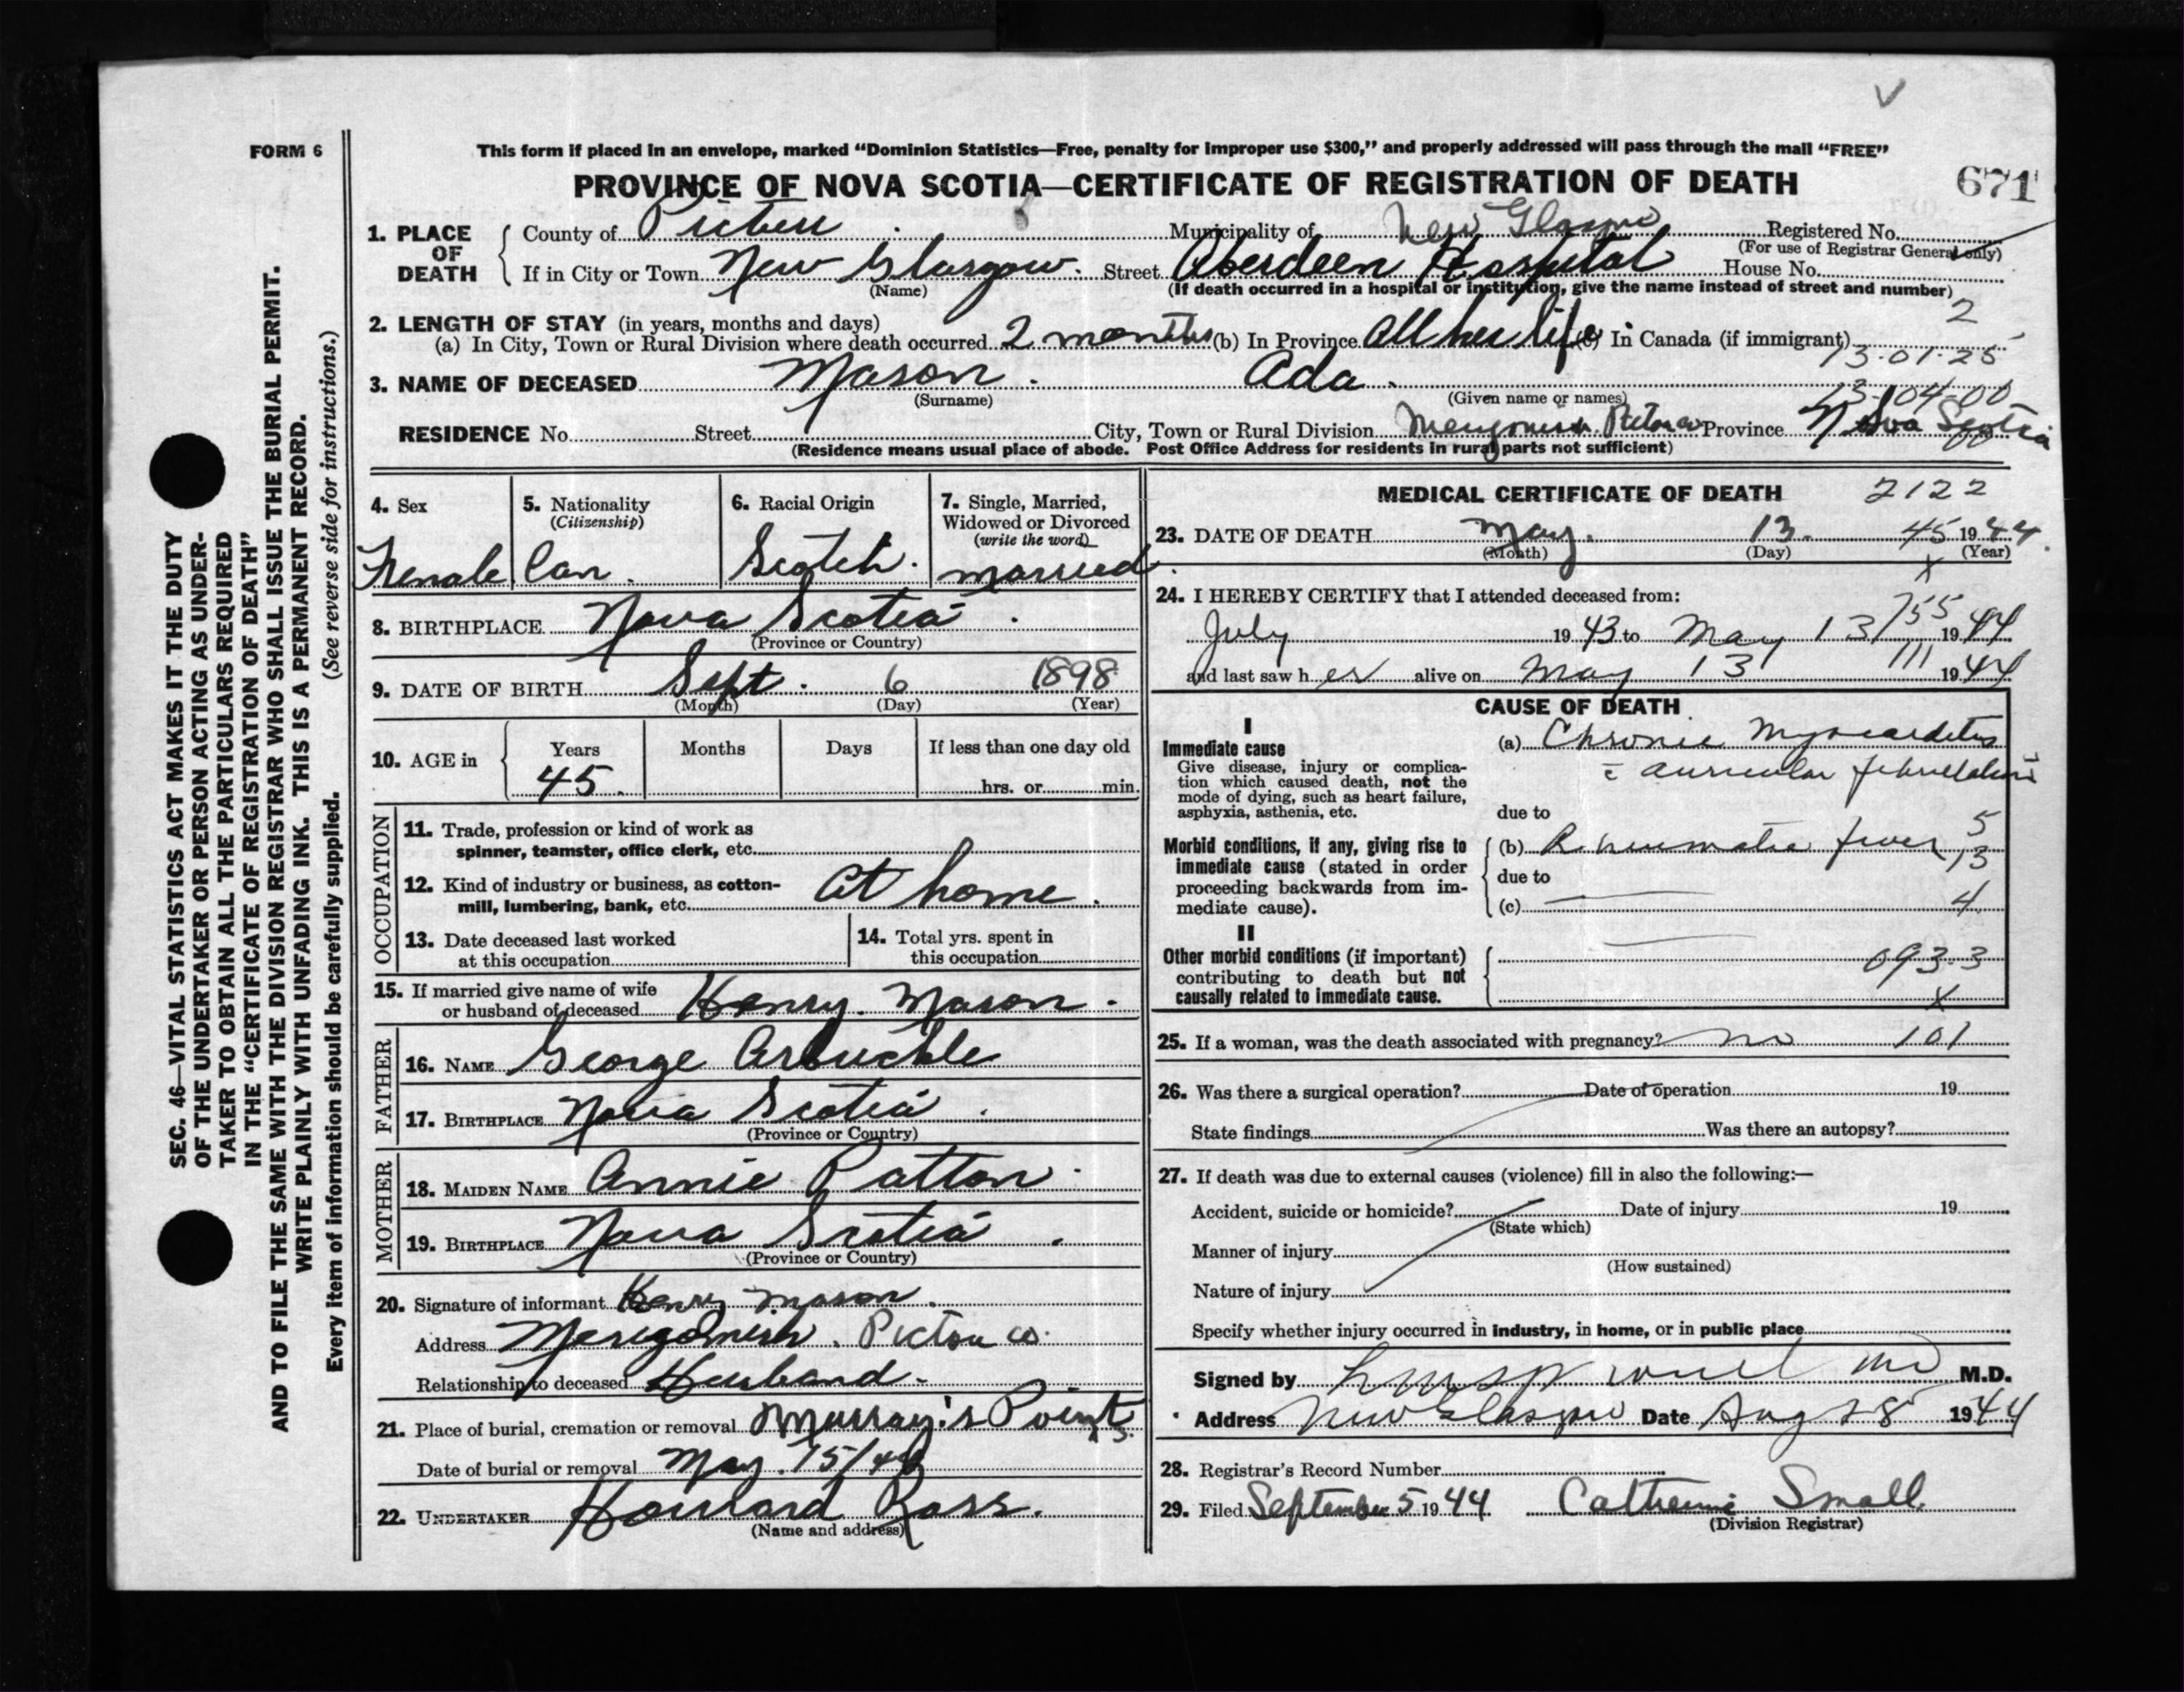 FORM 6
This form if placed in an envelope, marked “Dominion Statistics—Free, penalty for improper use $300,” and properly addressed will pass through the mail “FREE”
PROVINCE OF NOVA SCOTIA—CERTIFICATE OF REGISTRATION OF DEATH
671
1. PLACE OF DEATH County of Pictou Municipality of New Glasgow Registered No.
(For use of Registrar General only)
If in City or Town New Glasgow. Street Aberdeen Hospital House No.
(Name) (If death occurred in a hospital or institution, give the name instead of street and number)
2
2. LENGTH OF STAY (in years, months and days)
(a) In City, Town or Rural Division where death occurred 2 months (b) In Province All her life (c) In Canada (if immigrant)
13-01-25
3. NAME OF DECEASED Mason. Ada.
(Surname) (Given name or names)
13-104-00
RESIDENCE No. Street City, Town or Rural Division Merigomish Pictou Co Province Nova Scotia
(Residence means usual place of abode. Post Office Address for residents in rural parts not sufficient)
SEC. 46—VITAL STATISTICS ACT MAKES IT THE DUTY
OF THE UNDERTAKER OR PERSON ACTING AS UNDER-
TAKER TO OBTAIN ALL THE PARTICULARS REQUIRED
IN THE “CERTIFICATE OF REGISTRATION OF DEATH”
AND TO FILE THE SAME WITH THE DIVISION REGISTRAR WHO SHALL ISSUE THE BURIAL PERMIT.
WRITE PLAINLY WITH UNFADING INK. THIS IS A PERMANENT RECORD.
Every item of information should be carefully supplied. (See reverse side for instructions.)
4. Sex 5. Nationality 6. Racial Origin 7. Single, Married,
(Citizenship) Widowed or Divorced
(write the word)
Female Can. Scotch. married.
8. BIRTHPLACE Nova Scotia.
(Province or Country)
9. DATE OF BIRTH Sept. 6 1898
(Month) (Day) (Year)
10. AGE in Years Months Days If less than one day old
45. hrs. or min.
OCCUPATION
11. Trade, profession or kind of work as
spinner, teamster, office clerk, etc.
12. Kind of industry or business, as cotton-
mill, lumbering, bank, etc. At home.
13. Date deceased last worked
at this occupation
14. Total yrs. spent in
this occupation
15. If married give name of wife
or husband of deceased Henry. Mason.
FATHER
16. NAME George Arbuckle
17. BIRTHPLACE Nova Scotia.
(Province or Country)
MOTHER
18. MAIDEN NAME Annie Patton
19. BIRTHPLACE Nova Scotia.
(Province or Country)
20. Signature of informant Henry Mason.
Address Merigomish. Pictou Co.
Relationship to deceased Husband.
21. Place of burial, cremation or removal Murray's Point
Date of burial or removal May. 15/44
22. UNDERTAKER Howard Ross.
(Name and address)
MEDICAL CERTIFICATE OF DEATH 2122
23. DATE OF DEATH May. 13. 45 1944.
(Month) (Day) (Year)
X
24. I HEREBY CERTIFY that I attended deceased from:
755
July 1943 to May 13 1944
111
and last saw her alive on May 13 1944
CAUSE OF DEATH
I
Immediate cause
Give disease, injury or complica-
tion which caused death, not the
mode of dying, such as heart failure,
asphyxia, asthenia, etc.
(a) Chronic Myocarditis
c auricular fibrillation
due to
5
Morbid conditions, if any, giving rise to
immediate cause (stated in order
proceeding backwards from im-
mediate cause).
(b) Rheumatic fever 13
due to
(c) 4
II
Other morbid conditions (if important)
contributing to death but not
causally related to immediate cause.
093.3
X
25. If a woman, was the death associated with pregnancy? no 101
26. Was there a surgical operation? Date of operation 19
State findings Was there an autopsy?
27. If death was due to external causes (violence) fill in also the following:—
Accident, suicide or homicide? Date of injury 19
(State which)
Manner of injury
(How sustained)
Nature of injury
Specify whether injury occurred in industry, in home, or in public place
Signed by MD M.D.
Address New Glasgow Date Aug 28 1944
28. Registrar's Record Number
29. Filed September 5 1944 Catherine Small.
(Division Registrar)